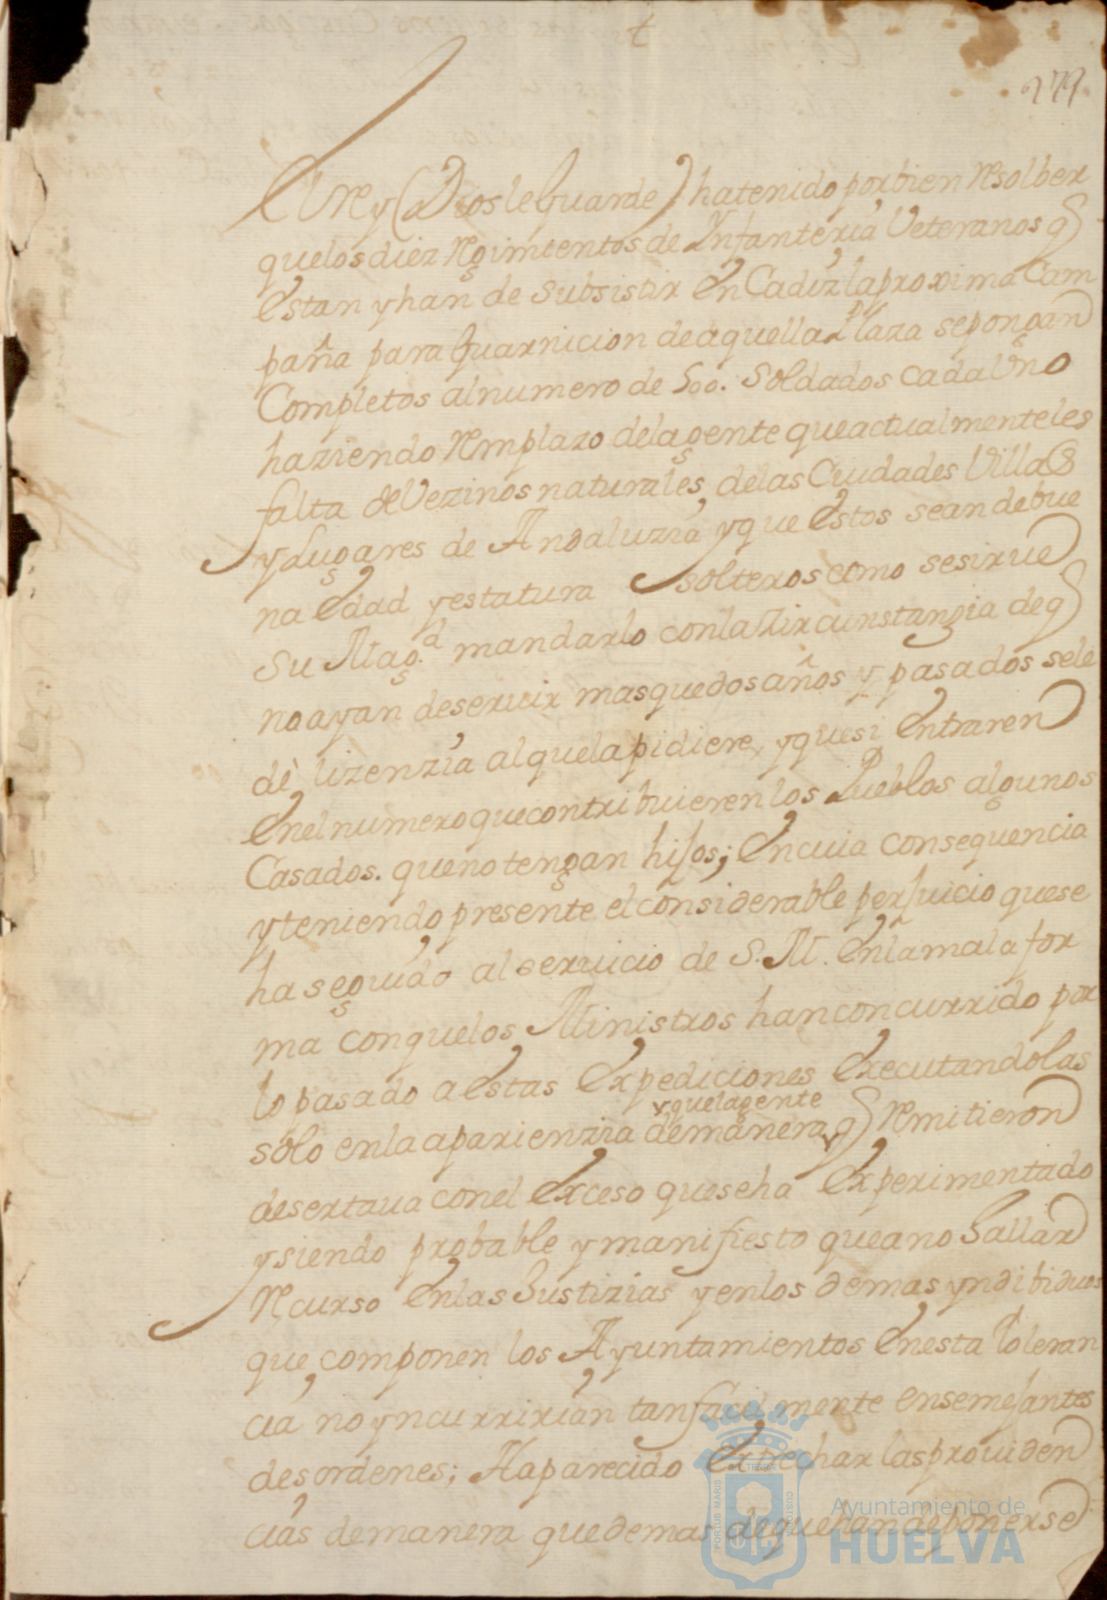 t
279.
El Rey (Dios le Guarde) ha tenido por bien resolber
que los diez Regimientos de Ynfanteria Veteranos q
estan y han de subsistir en Cadiz la proxima Cam
paña para Guarnicion de aquella Plaza se pongan
Completos al numero de 500. Soldados cada Vno
haziendo remplazo de la gente que actualmente les
falta de Vezinos naturales de las Ciudades Villas
y Lugares de Andaluzia y que estos sean de bue
na edad y estatura solteros como se sirue
Su Mag.d mandarlo con la Zircunstanzia de q
no ayan de seruir mas que dos años y pasados se le
dè lizenzia al que la pidiere, y que si entraren
en el numero que contribuieren los Pueblos algunos
Casados. que no tengan hijos; en cuia consequencia
y teniendo presente el considerable perjuicio que se
ha seguido al seruicio de S. M. en la mala for
ma con que los Ministros han concurrido por
lo pasado a estas expediciones executandolas
y que la gente
solo en la aparienzia de manera q remitieron
desertaua con el exceso que se ha experimentado
y siendo probable y manifiesto que a no hallar
recurso en las Justizias y en los demas yndibiduos
que componen los Ayuntamientos en esta toleran
cia no yncurririan tan facilmente en semejantes
desordenes; Ha parecido expechar las prouiden
cias de manera que demas de que han de ponerse
PORTUS MARIS
TERRE
CUSTODIA
Ayuntamiento de
HUELVA